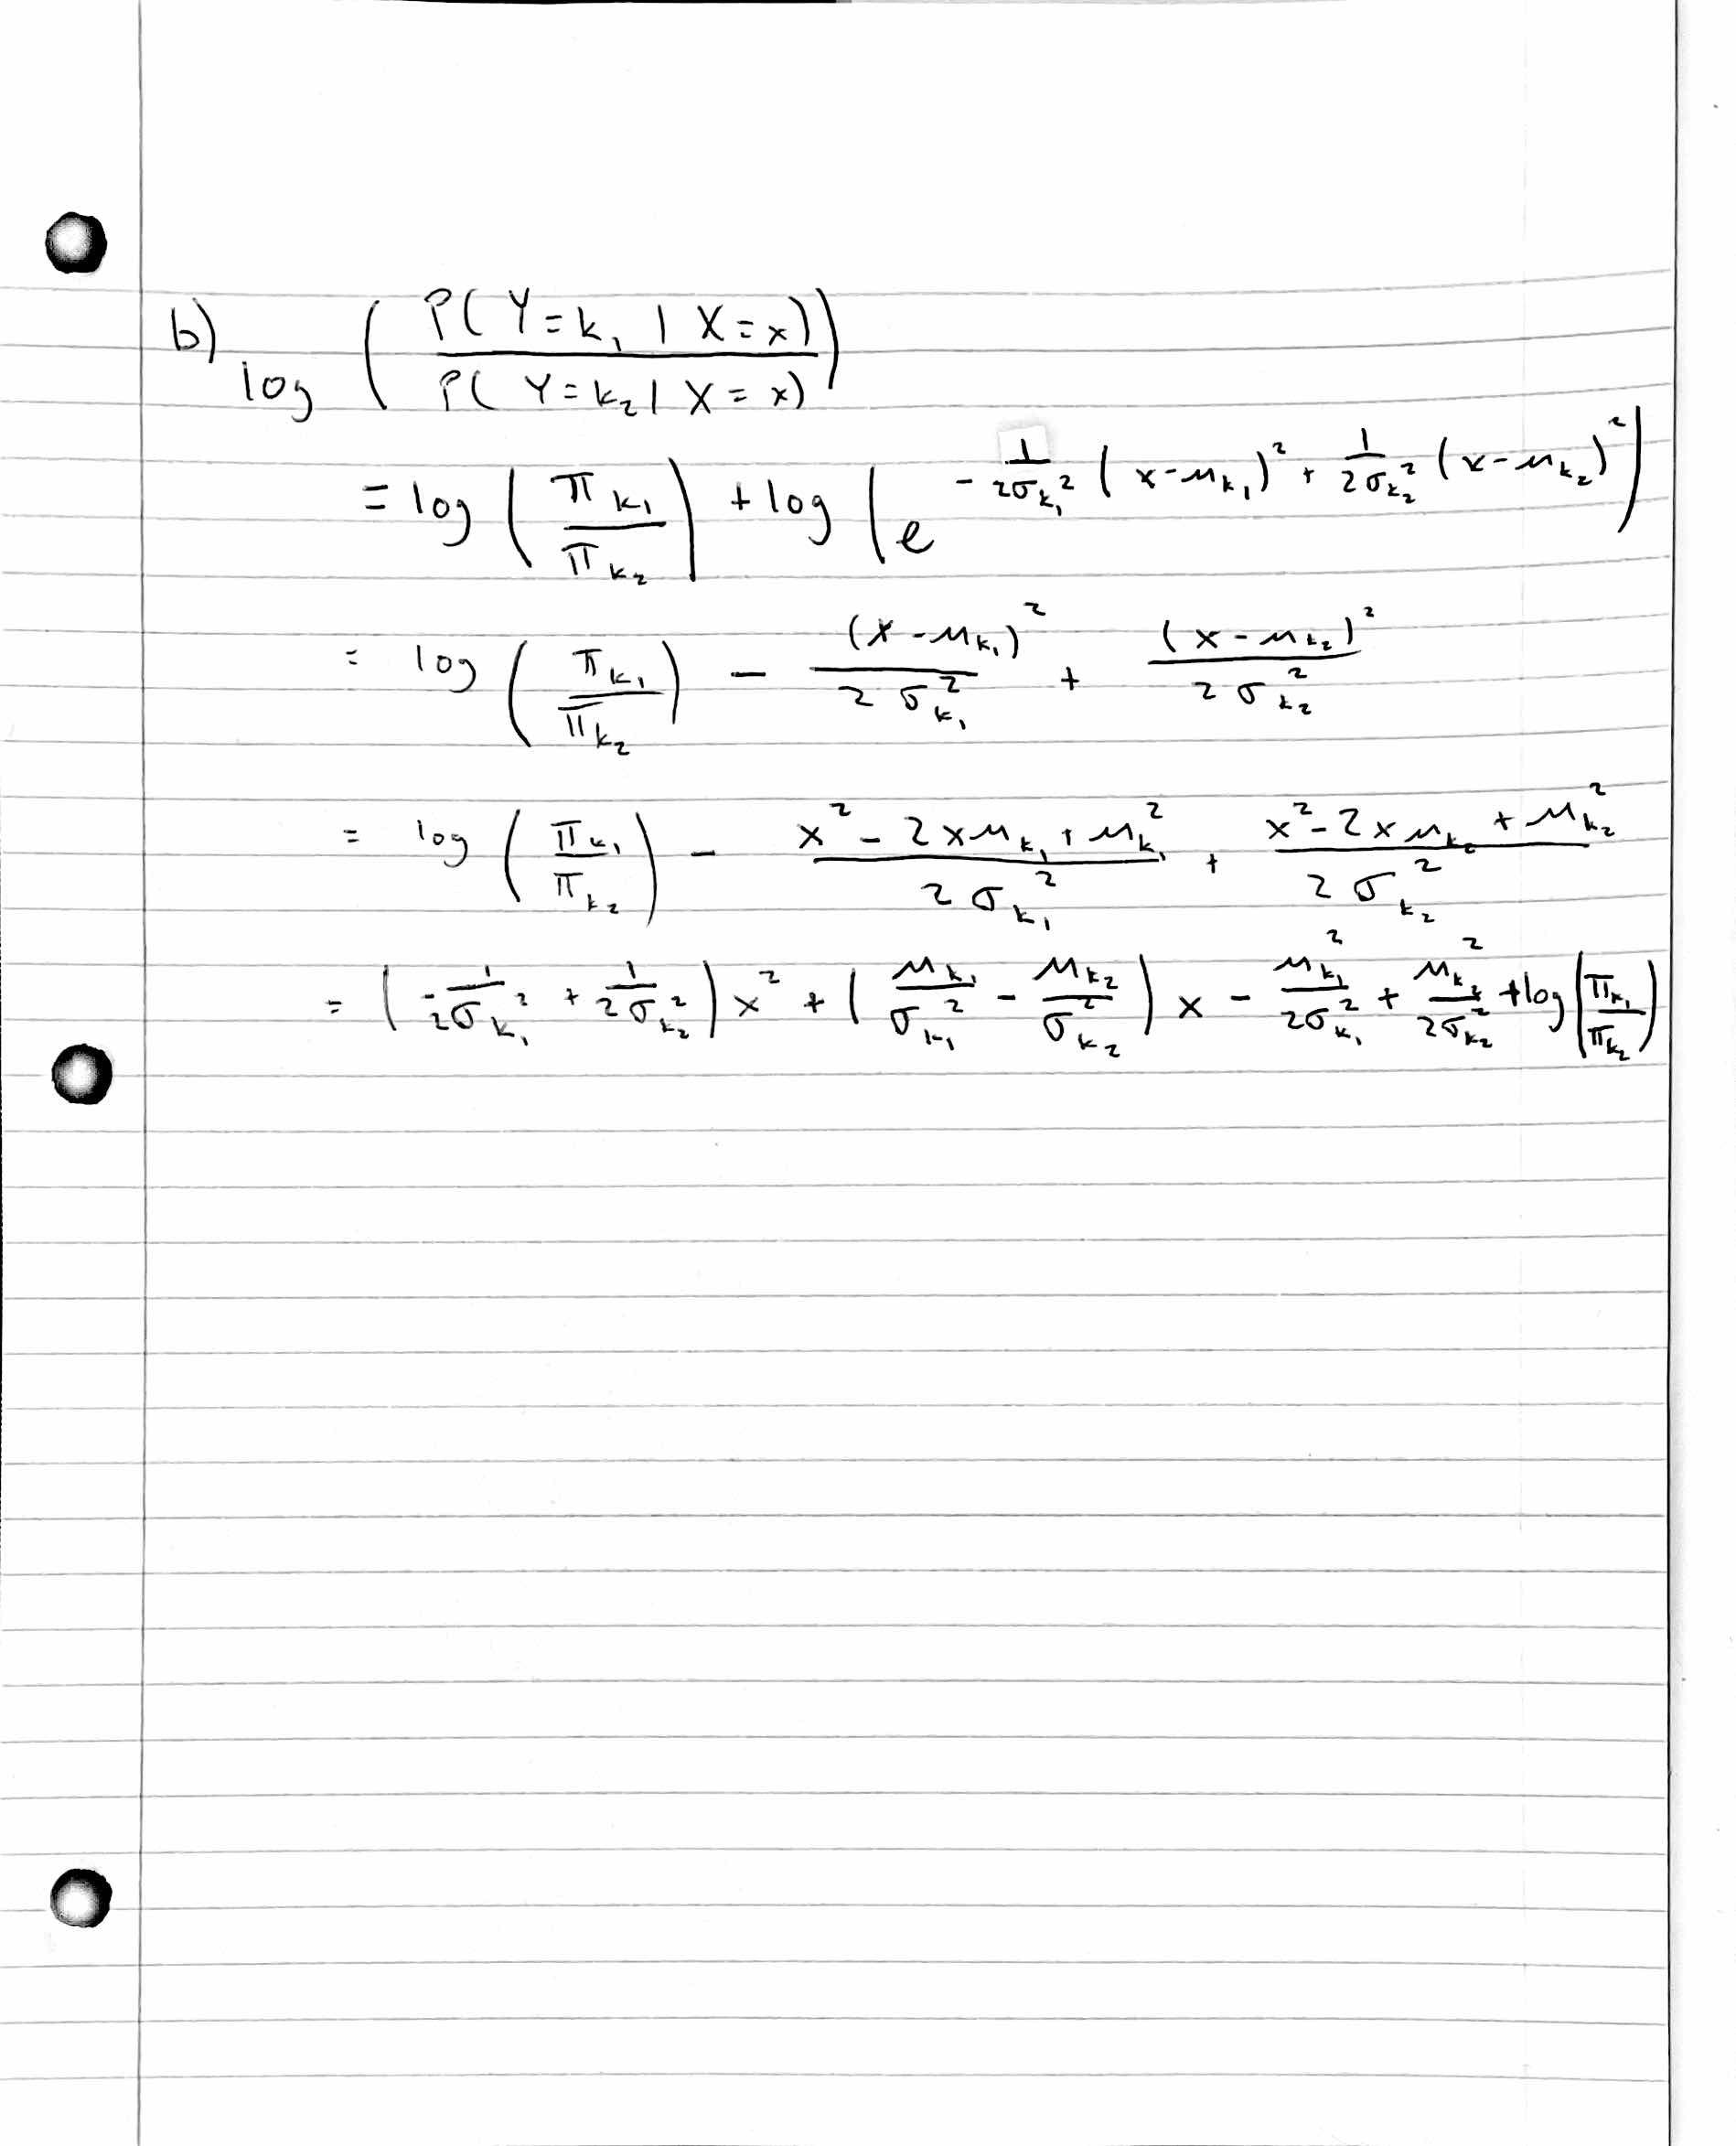 b) log ( P(Y=k₁ | X=x) / P(Y=k₂ | X=x) )
= log ( π_k₁ / π_k₂ ) + log ( e^( - 1/(2σ_k₁²) (x-μ_k₁)² + 1/(2σ_k₂²) (x-μ_k₂)² ) )
= log ( π_k₁ / π_k₂ ) - (x-μ_k₁)² / (2σ_k₁²) + (x-μ_k₂)² / (2σ_k₂²)
= log ( π_k₁ / π_k₂ ) - (x² - 2xμ_k₁ + μ_k₁²) / (2σ_k₁²) + (x² - 2xμ_k₂ + μ_k₂²) / (2σ_k₂²)
= ( - 1/(2σ_k₁²) + 1/(2σ_k₂²) ) x² + ( μ_k₁/σ_k₁² - μ_k₂/σ_k₂² ) x - μ_k₁²/(2σ_k₁²) + μ_k₂²/(2σ_k₂²) + log ( π_k₁ / π_k₂ )